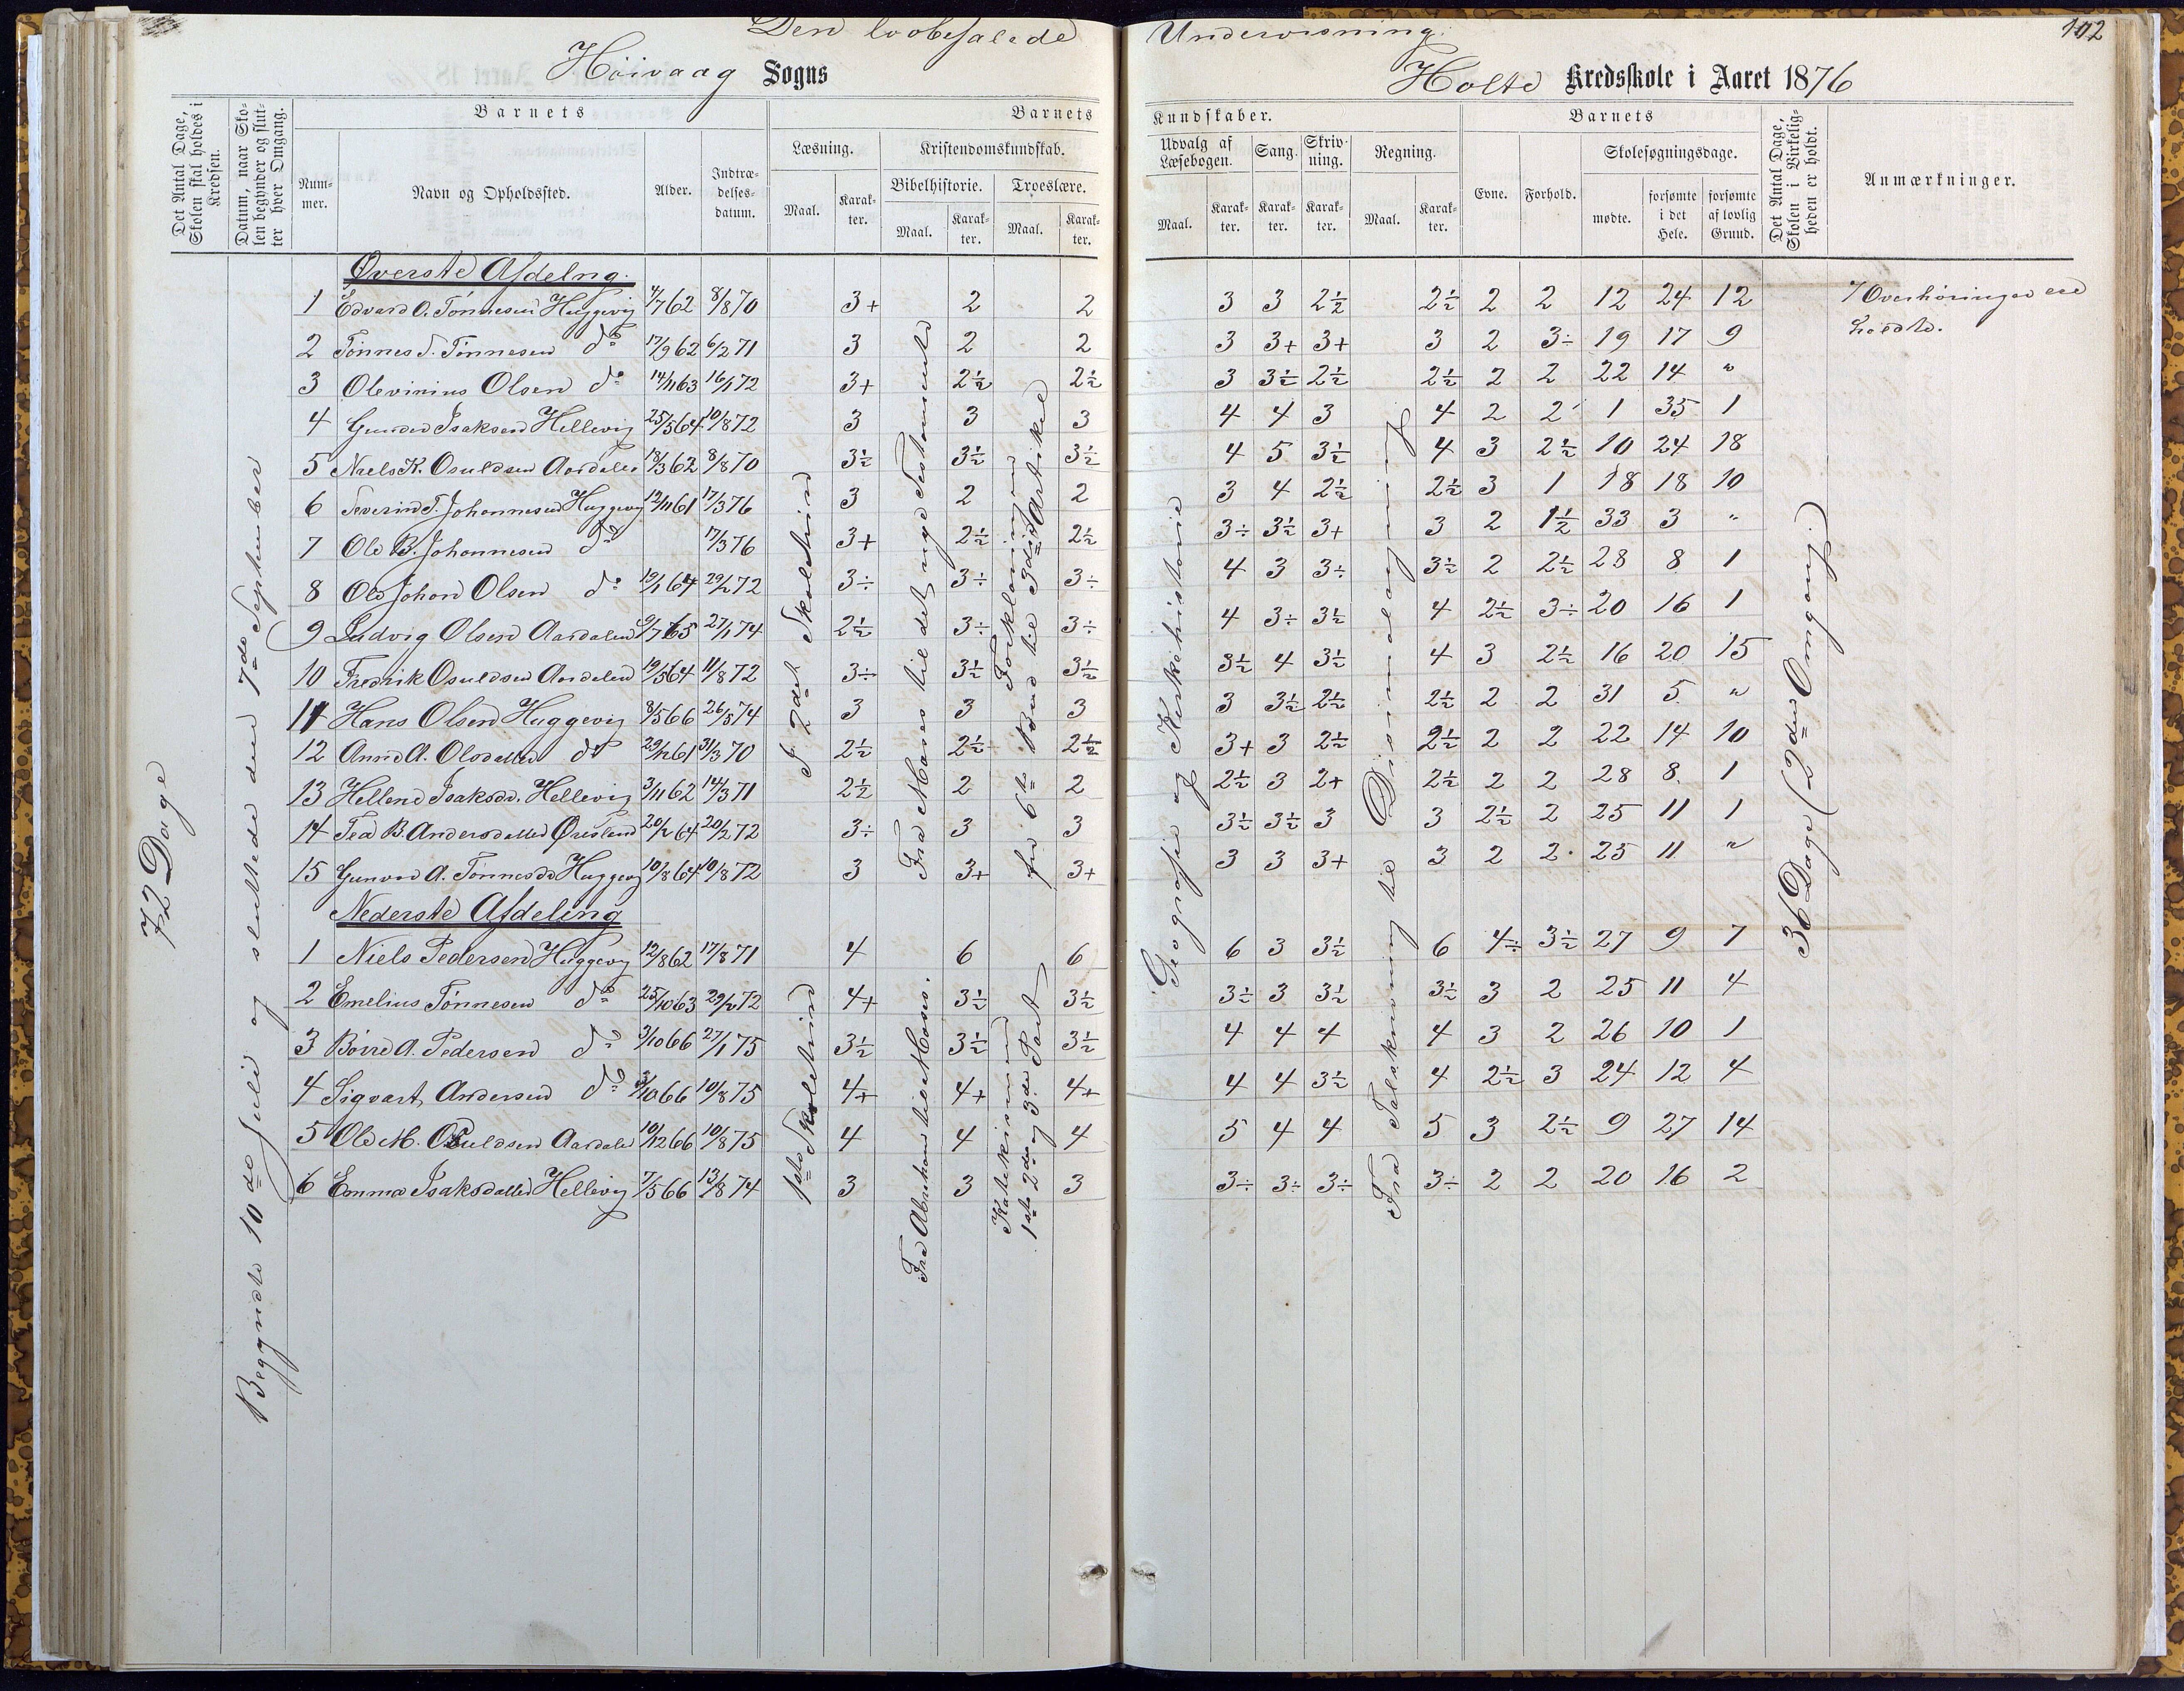 Den lovbefalede Undervisning.
102
Höivaag Sogns
Holte Kredsskole i Aaret 1876
Det Antal Dage, Skolen skal holdes i Kredsen.
Datum, naar Skolen begynder og slutter hver Omgang.
Barnets
Nummer.
Navn og Opholdssted.
Alder.
Indtrædelsesdatum.
Barnets Kundskaber.
Læsning.
Maal.
Karakter.
Kristendomskundskab.
Bibelhistorie.
Maal.
Karakter.
Troeslære.
Maal.
Karakter.
Udvalg af Læsebogen.
Maal.
Karakter.
Sang.
Karakter.
Skrivning.
Karakter.
Regning.
Maal.
Karakter.
Barnets
Evne.
Forhold.
Skolesøgningsdage.
mødte.
forsømte i det Hele.
forsømte af lovlig Grund.
Det Antal Dage, Skolen i Virkeligheden er holdt.
Anmærkninger.
72 Dage
Begyndte 10de Juli og sluttede den 7de September
I 2det Skoletrin
Fra Moses til det nye Testamente
Forklaringen fra 6te Bud til 3die Artikel
Geografie og Kirkehistorie
Fra Talskrivning til Desimalregning
36 Dage (2den Omgang).
7 Overhøringer ere
holdte.
Øverste Afdelng.
1 Edvard O. Tönnesen Huggevig 4/7 62 8/8 70 3+ 2 2 3 3 2½ 2½ 2 2 12 24 12
2 Tönnes T. Tönnesen do 17/9 62 6/2 71 3 2 2 3 3+ 3+ 3 2 3÷ 19 17 9
3 Olevinius Olsen do 14/11 63 16/1 72 3+ 2½ 2½ 3 3½ 2½ 2½ 2 2 22 14 "
4 Gunder Isaksen Hellevig 25/5 64 10/8 72 3 3 3 4 4 3 4 2 2 1 35 1
5 Niels K. Osuldsen Aardalen 18/3 62 8/8 70 3½ 3½ 3½ 4 5 3½ 4 3 2½ 10 24 18
6 Severin T. Johannesen Huggevig 12/11 61 17/3 76 3 2 2 3 4 2½ 2½ 3 1 18 18 10
7 Ole B. Johannesen do 17/3 76 3+ 2½ 2½ 3÷ 3½ 3+ 3 2 1½ 33 3 "
8 Ole Johan Olsen do 19/1 64 29/2 72 3÷ 3÷ 3÷ 4 3 3÷ 3½ 2 2½ 28 8 1
9 Ludvig Olsen Aardalen 9/7 65 27/1 74 2½ 3÷ 3÷ 4 3÷ 3½ 4 2½ 3÷ 20 16 1
10 Fredrik Osuldsen Aardalen 19/5 64 11/8 72 3÷ 3½ 3½ 3½ 4 3½ 4 3 2½ 16 20 15
11 Hans Olsen Huggevig 8/5 66 26/5 74 3 3 3 3 3½ 2½ 2½ 2 2 31 5 "
12 Anne A. Olsdatter do 29/12 61 31/3 70 2½ 2½ 2½ 3+ 3 2½ 2½ 2 2 22 14 10
13 Hellene Isaksdr. Hellevig 3/11 62 14/3 71 2½ 2 2 2½ 3 2+ 2½ 2 2 28 8 1
14 Tea B. Andersdatter Øresland 20/2 64 20/2 72 3÷ 3 3 3½ 3½ 3 3 2½ 2 25 11 1
15 Gunvor A. Tönnesdr Huggevig 10/8 64 10/8 72 3 3+ 3+ 3 3 3+ 3 2 2 25 11 "
Nederste Afdeling
1ste Skoletrin
Fra Abraham til Moses.
Katekismen 1ste 2den og 3die Part
1 Niels Pedersen Huggevig 12/8 62 17/8 71 4 6 6 6 3 3½ 6 4÷ 3½ 27 9 7
2 Emelius Tönnesen do 25/10 63 29/2 72 4+ 3½ 3½ 3½ 3 3½ 3½ 3 2 25 11 4
3 Börre A. Pedersen do 3/10 66 27/1 75 3½ 3½ 3½ 4 4 4 4 3 2 26 10 1
4 Sigvart Andersen do 3/10 66 10/8 75 4+ 4+ 4+ 4 4 3½ 4 2½ 3 24 12 4
5 Ole M. Osuldsen Aardalen 10/12 66 10/8 75 4 4 4 5 4 4 5 3 2½ 9 27 14
6 Emma Isaksdatter Hellevig 7/5 66 13/8 74 3 3 3 3÷ 3÷ 3÷ 3÷ 2 2 20 16 2